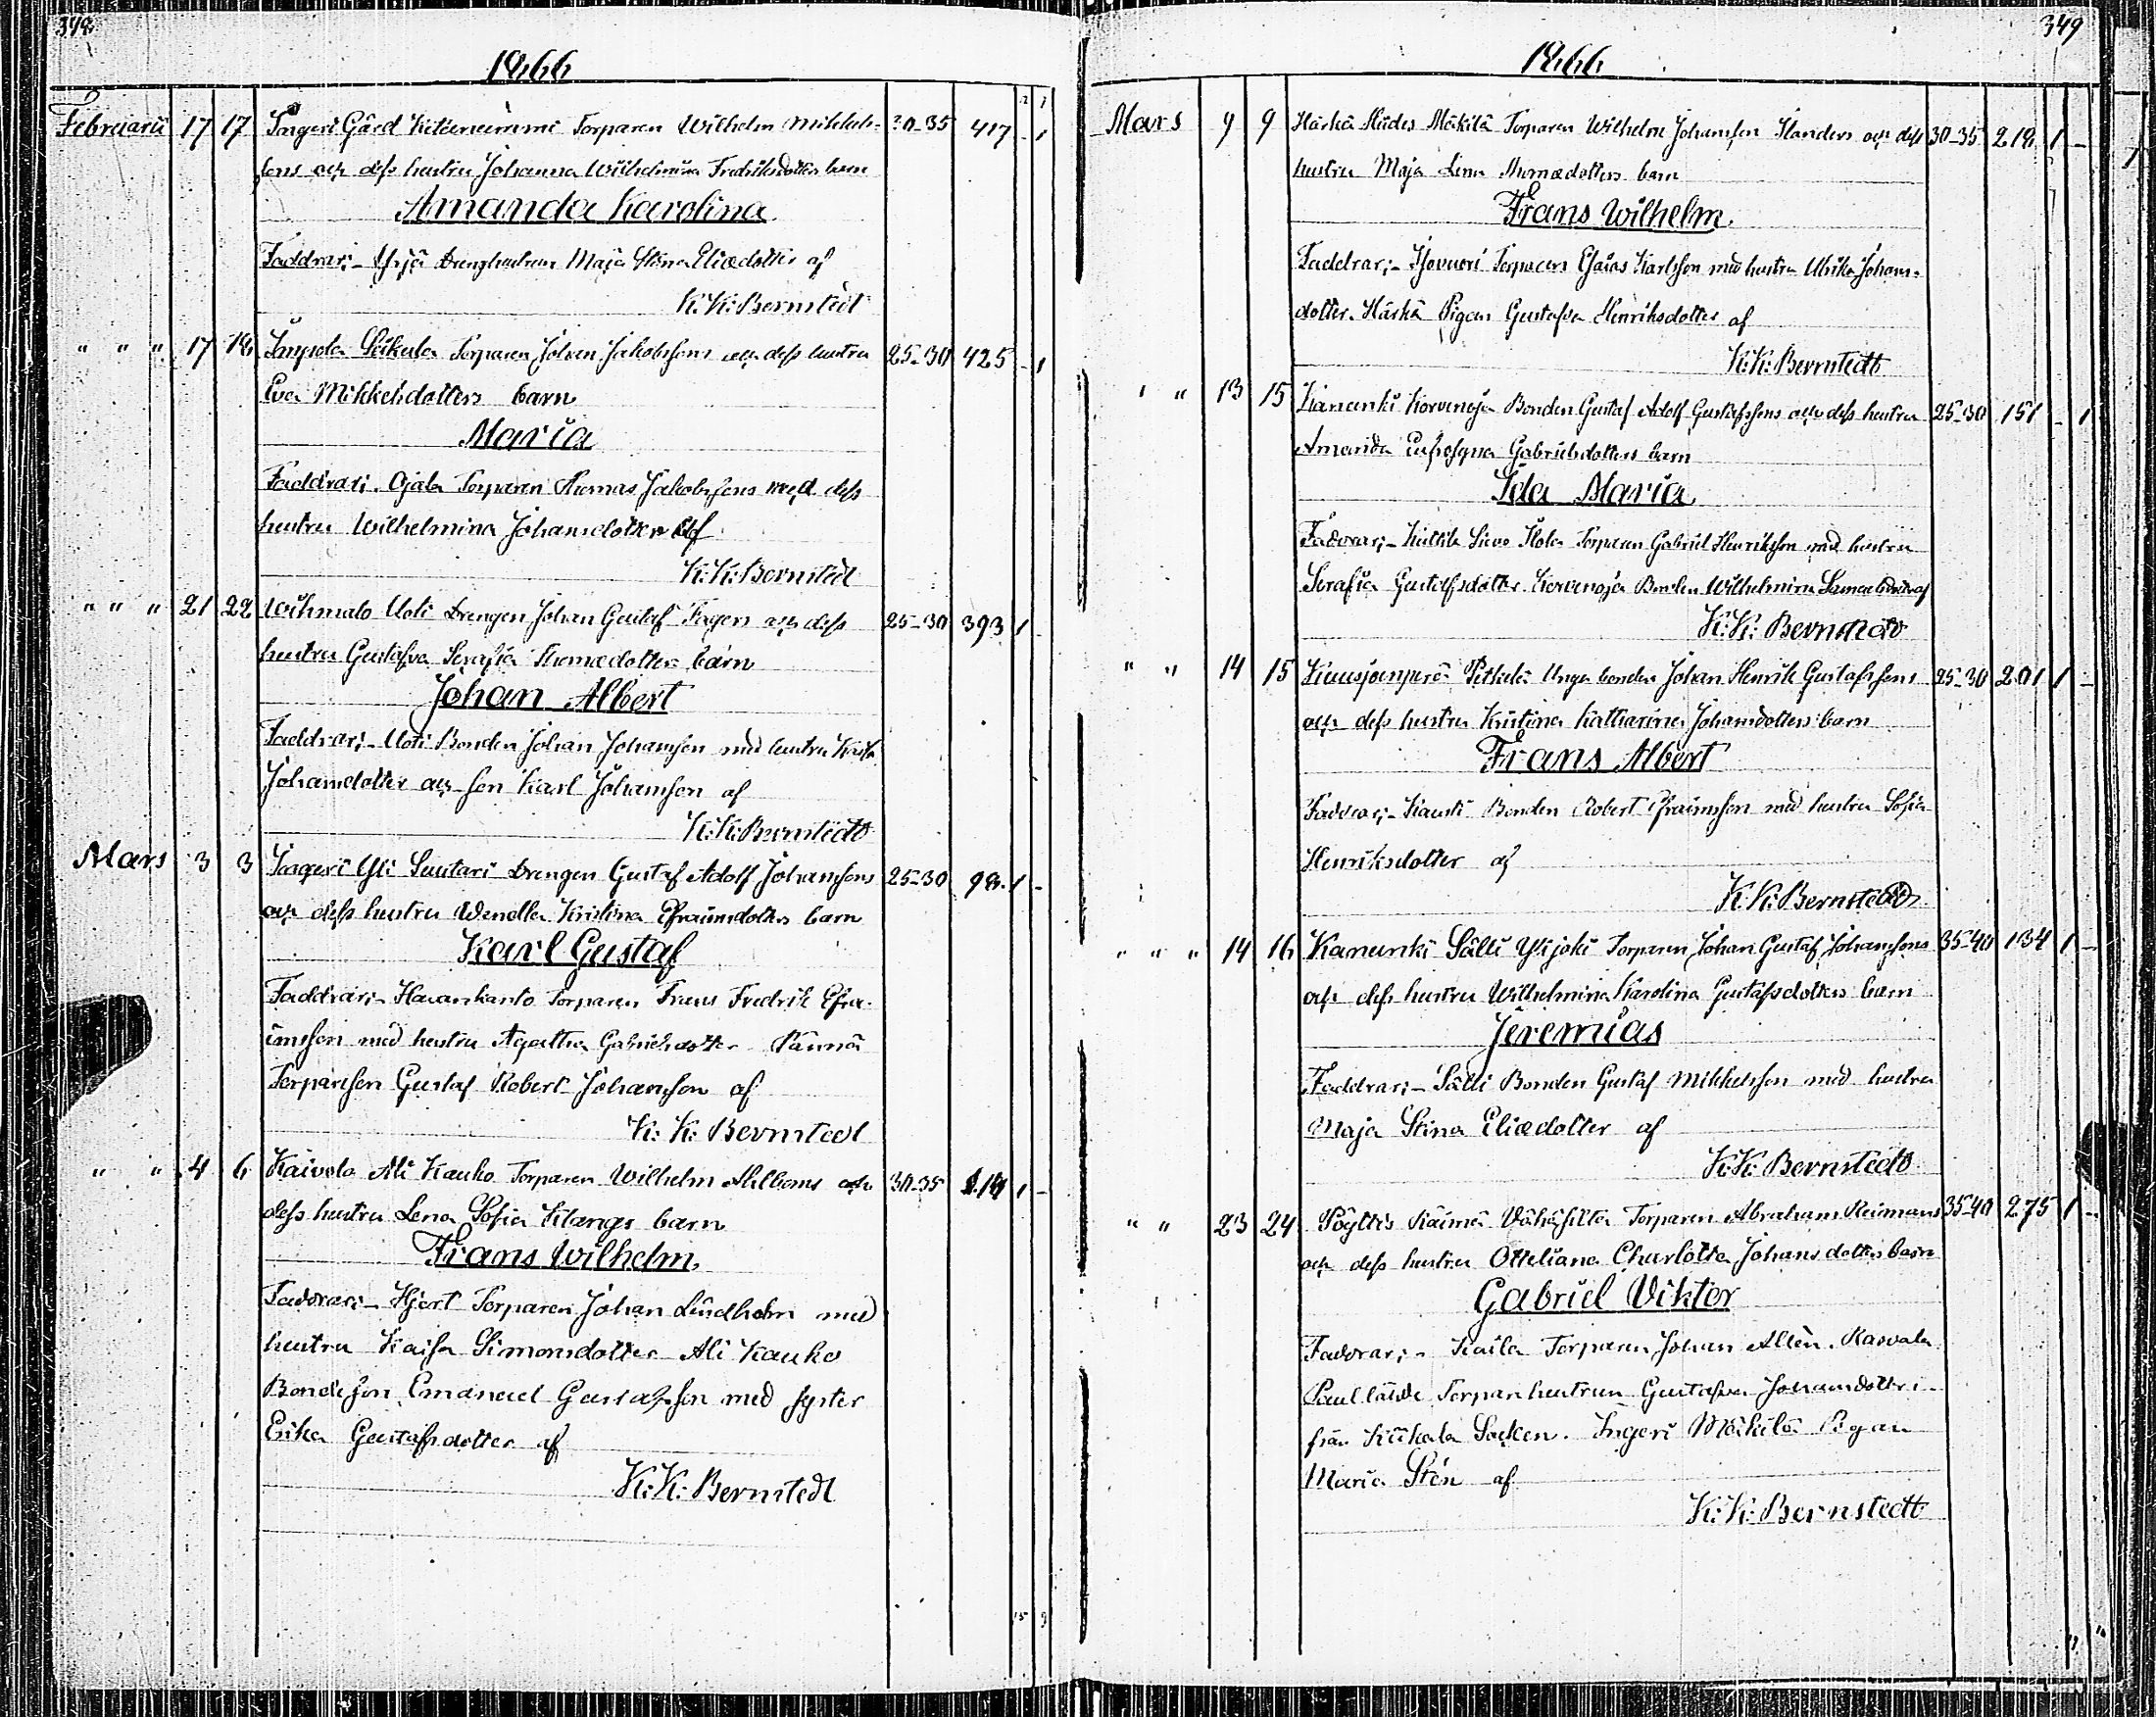 348
1866
Februarii 17 17 Ingeri Gård Kiteniemmi Torparen Wilhelm Mikkels- 30-35 417 - 1
sons och dess hustru Johanna Wilhelmina Fredriksdotters barn
Amanda Karolina
Faddrar; Yrjä Drenghustrun Maja Stina Eliædotter af
K. K: Bernstedt
" " " 17 18 Torparen Johan Jakobssons och dess hustru 25-30 425 - 1
Eva Mikkelsdotters barn
Maria
Faddrar; Ojala Torparen Thomas Jakobssons med dess
hustru Wilhelmina Johansdotter af
K: K: Bernstedt
" " " 21 22 Wihmalo Uoti Drengen Johan Gustaf Fagers och dess 25-30 393 1 -
hustru Gustafva Serafia Thomædotters barn
Johan Albert
Faddrar; Uoti Bonden Johan Johansson med hustru Kaisa
Johansdotter och son Karl Johansson af
K: K: Bernstedt
Mars 3 3 Ingeri Yli Suutari Drengen Gustaf Adolf Johanssons 25-30 98 1 -
och dess hustru Wendla Kristina Efraimsdotters barn
Karl Gustaf
Faddrar; Havankanto Torparen Frans Fredrik Efra-
imsson med hustru Agatha Gabrielsdotter
Torparesson Gustaf Robert Johansson af
K: K: Bernstedt
" " 4 6 Kaivola Ali Kauko Torparen Wilhelm och 30-35 1 -
dess hustru Lena Sofia barn
Frans Wilhelm
Faddrar; Hjert Torparen Johan Lindholm med
hustru Kaisa Simonsdotter Ali Kauko
Bondesson Emanuel Gustafsson med syster
Erika Gustafsdotter af
K: K: Bernstedt
349
1866
Mars 9 9 Härkä Mäkilä Torparen Wilhelm Johansson Handers och dess 30-35 218 1 -
hustru Maja Lena Thomædotters barn
Frans Wilhelm
Faddrar; Torparen Esaias Karlsson med hustru Ulrika Johans-
dotter. Härkä Pigan Gustafva Henriksdotter af
K: K: Bernstedt
" " 13 15 Kanunki Korvenoja Bonden Gustaf Adolf Gustafssons och dess hustru 25-30 151 - 1
Amanda Eufrosyna Gabrielsdotters barn
Ida Maria
Faddrar; Torparen Gabriel Henriksson med hustru
Serafia Gustafsdotter. Korvenoja Wilhelmina
K: K: Bernstedt
" " 14 15 Unga bonden Johan Henrik Gustafssons 25-30 201 1 -
och dess hustru Kristina Katharina Johansdotters barn
Frans Albert
Faddrar; Bonden Robert Efraimsson med hustru Sofia
Henriksdotter af
K: K: Bernstedt
" " " 14 16 Kanunki Sälli Ykijoki Torparen Johan Gustaf Johanssons 35-40 134 1 -
och dess hustru Wilhelmina Karolina Gustafsdotters barn
Jeremias
Faddrar; Sälli Bonden Gustaf Mikkelsson med hustru
Maja Stina Eliædotter af
K: K: Bernstedt
" " 23 24 Pöyltis Torparen Abraham Reimans 35-40 275 1 -
och dess hustru Otteliana Charlotta Johansdotters barn
Gabriel Viktor
Faddrar; Kaila Torparen Johan Alén.
Torparehustrun Gustafva Johansdotter
från Kiikala Socken. Ingeri Mäkilä Pigan
Maria Stén af
K: K: Bernstedt